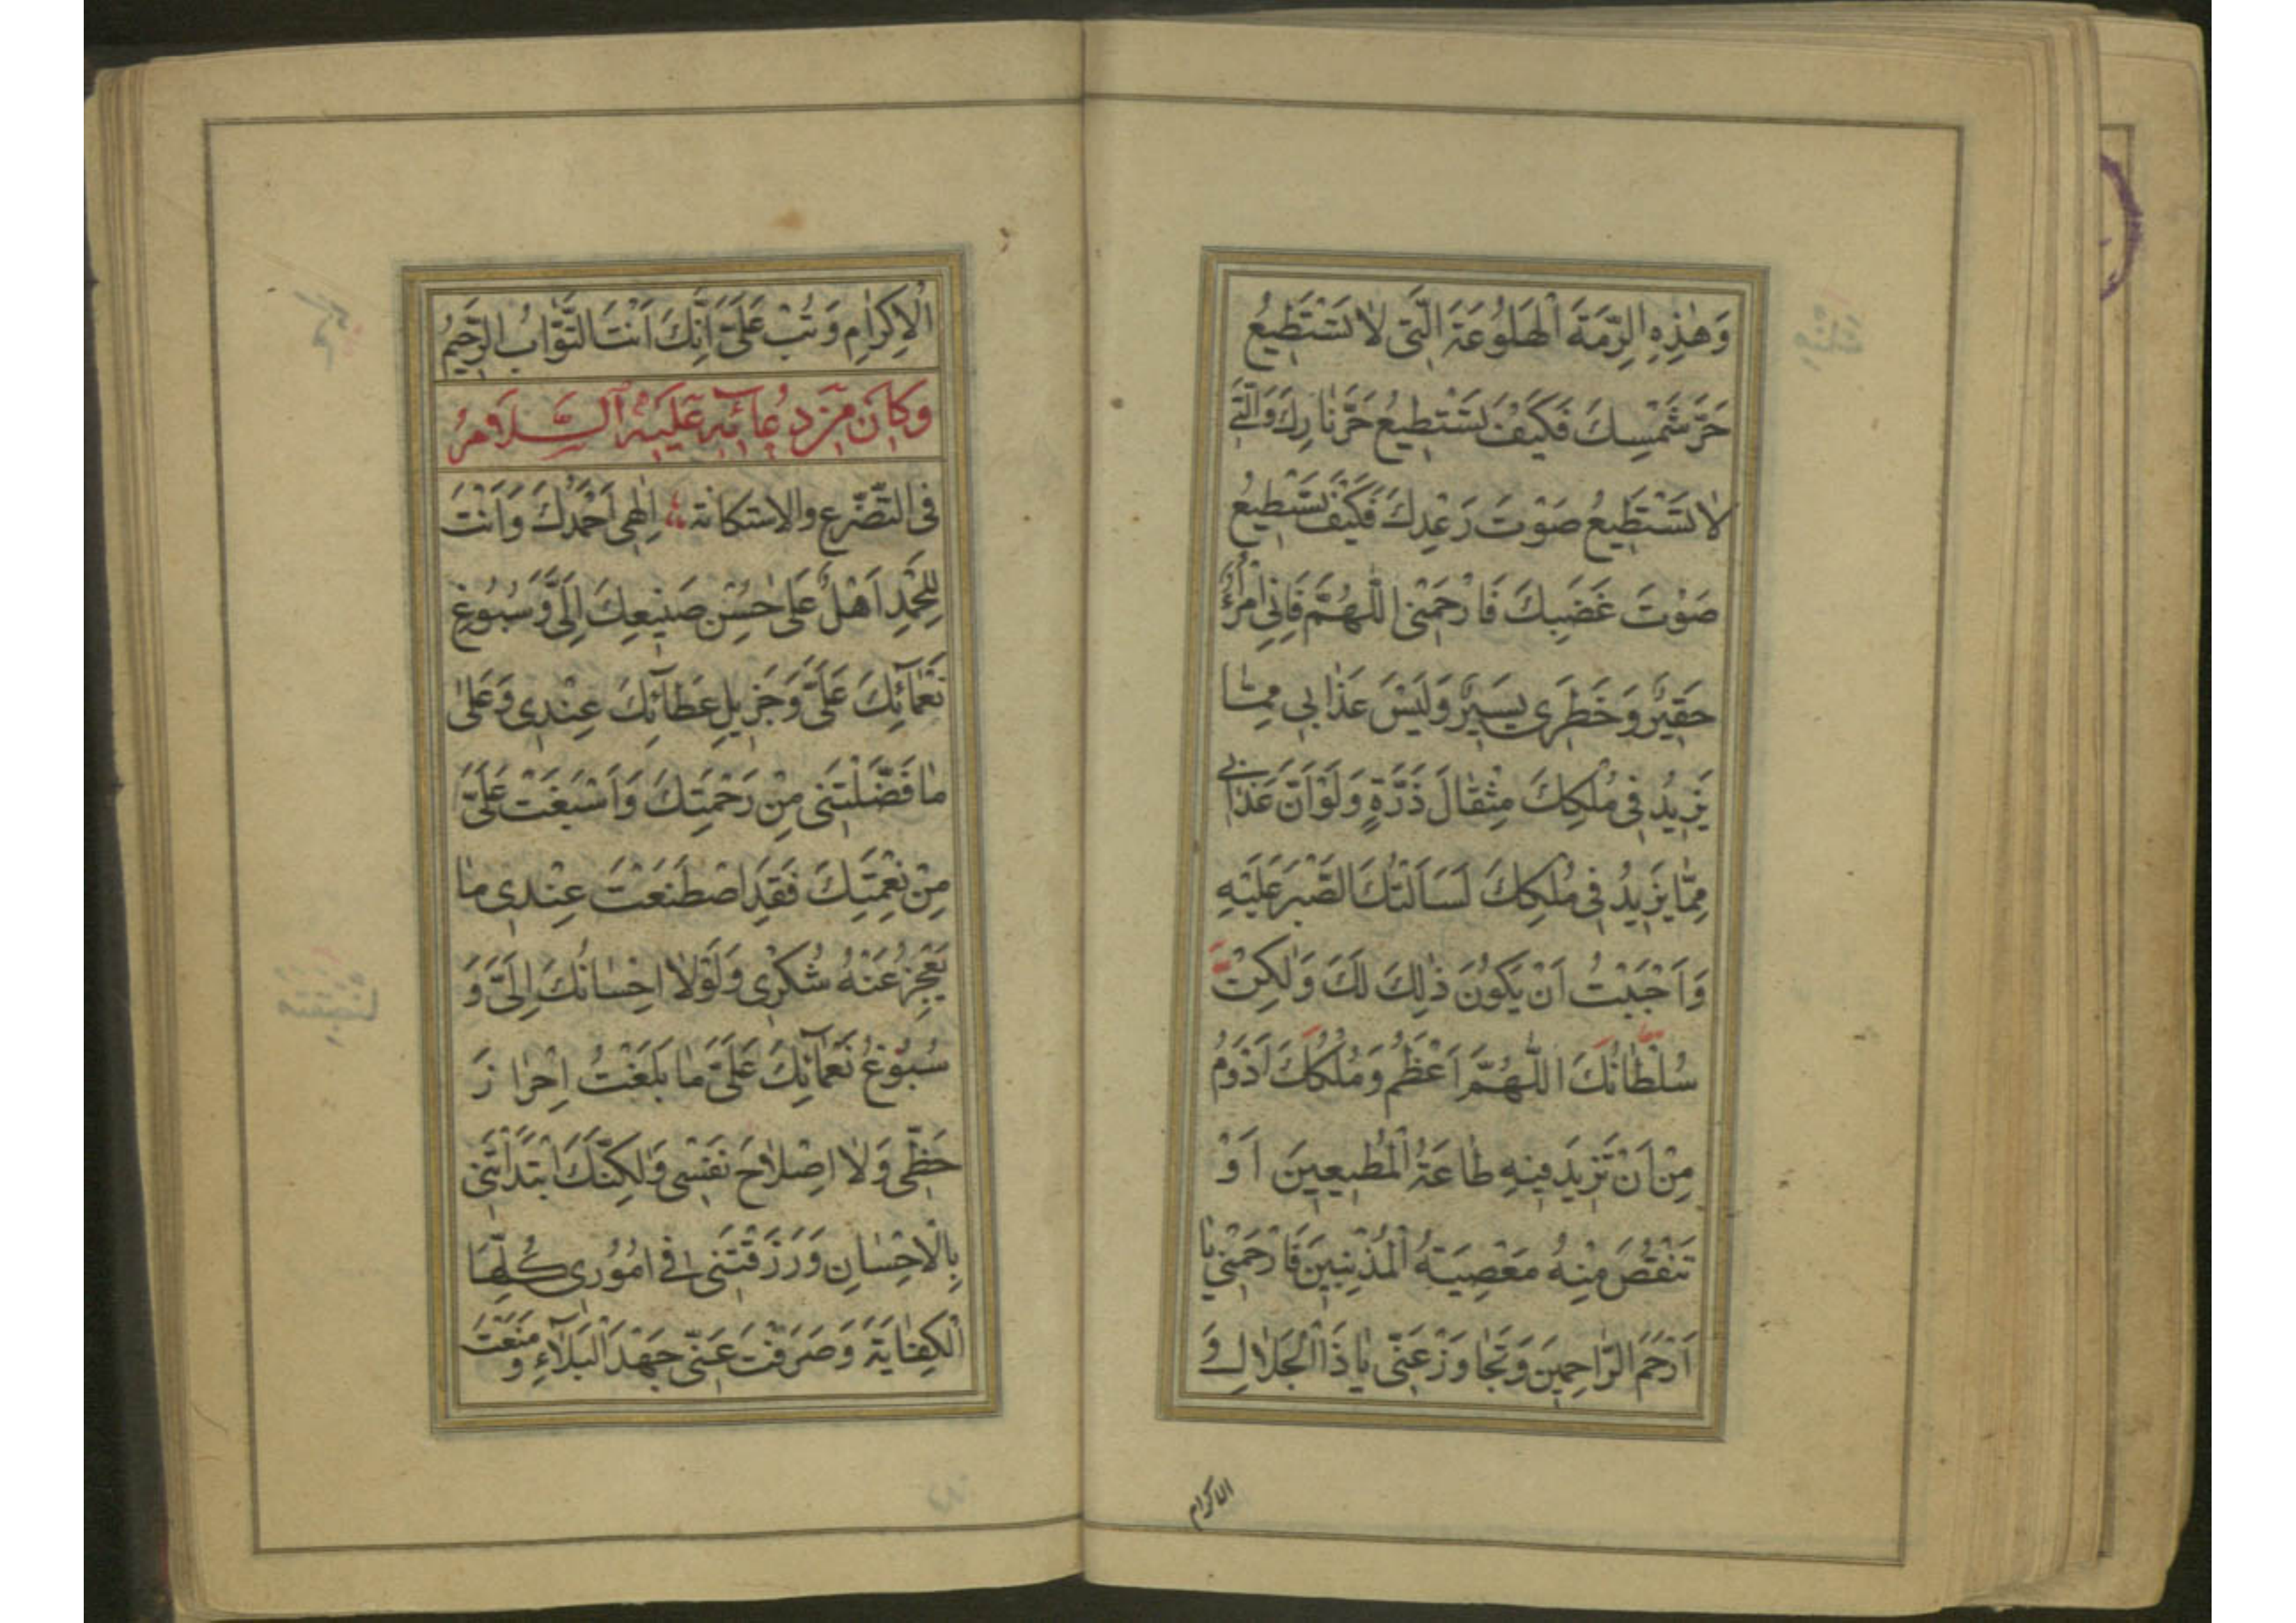 وَهٰذِهِ الرِّمَّةَ الْهَلُوعَةَ الَّتي لٰا تَسْتَطيعُ
حَرَّ شَمْسِكَ فَكَيْفَ تَسْتَطيعُ حَرَّ نٰارِكَ وَالَّتي
لٰا تَسْتَطيعُ صَوْتَ رَعْدِكَ فَكَيْفَ تَسْتَطيعُ
صَوْتَ غَضَبِكَ فَارْحَمْنِي اللّٰهُمَّ فَاِنّي امْرُؤٌ
حَقيرٌ وَخَطَري يَسيرٌ وَلَيْسَ عَذٰابي مِمّٰا
يَزيدُ في مُلْكِكَ مِثْقٰالَ ذَرَّةٍ وَلَوْ اَنَّ عَذٰابي
مِمّٰا يَزيدُ في مُلْكِكَ لَسَاَلْتُكَ الصَّبْرَ عَلَيْهِ
وَاَحْبَبْتُ اَنْ يَكُونَ ذٰلِكَ لَكَ وَلٰكِنْ
سُلْطٰانُكَ اللّٰهُمَّ اَعْظَمُ وَمُلْكُكَ اَدْوَمُ
مِنْ اَنْ تَزيدَ فيهِ طٰاعَةُ الْمُطيعينَ اَوْ
تَنْقُصَ مِنْهُ مَعْصِيَةُ الْمُذْنِبينَ فَارْحَمْني يٰا
اَرْحَمَ الرّٰاحِمينَ وَتَجٰاوَزْ عَنّي يٰا ذَا الْجَلٰالِ وَ
الاكرام
الْاِكْرٰامِ وَتُبْ عَلَيَّ اِنَّكَ اَنْتَ التَّوّٰابُ الرَّحيمُ
وَكانَ مِنْ دُعائِهِ عَلَيْهِ السَّلامُ
في التَّضَرُّعِ والاستكانة اِلٰهي اَحْمَدُكَ وَاَنْتَ
لِلْحَمْدِ اَهْلٌ عَلىٰ حُسْنِ صَنيعِكَ اِلَيَّ وَسُبُوغِ
نَعْمٰآئِكَ عَلَيَّ وَجَزيلِ عَطٰآئِكَ عِنْدي وَعَلىٰ
مٰا فَضَّلْتَني مِنْ رَحْمَتِكَ وَاَسْبَغْتَ عَلَيَّ
مِنْ نِعْمَتِكَ فَقَدِ اصْطَنَعْتَ عِنْدي مٰا
يَعْجِزُ عَنْهُ شُكْري وَلَوْلٰا اِحْسٰانُكَ اِلَيَّ وَ
سُبُوغُ نَعْمٰآئِكَ عَلَيَّ مٰا بَلَغْتُ اِحْرٰازَ
حَظّي وَلٰا اِصْلٰاحَ نَفْسي وَلٰكِنَّكَ ابْتَدَاْتَني
بِالْاِحْسٰانِ وَرَزَقْتَني في اُمُوري كُلِّهَا
الْكِفٰايَةَ وَصَرَفْتَ عَنّي جَهْدَ الْبَلٰآءِ وَ مَنَعْتَ